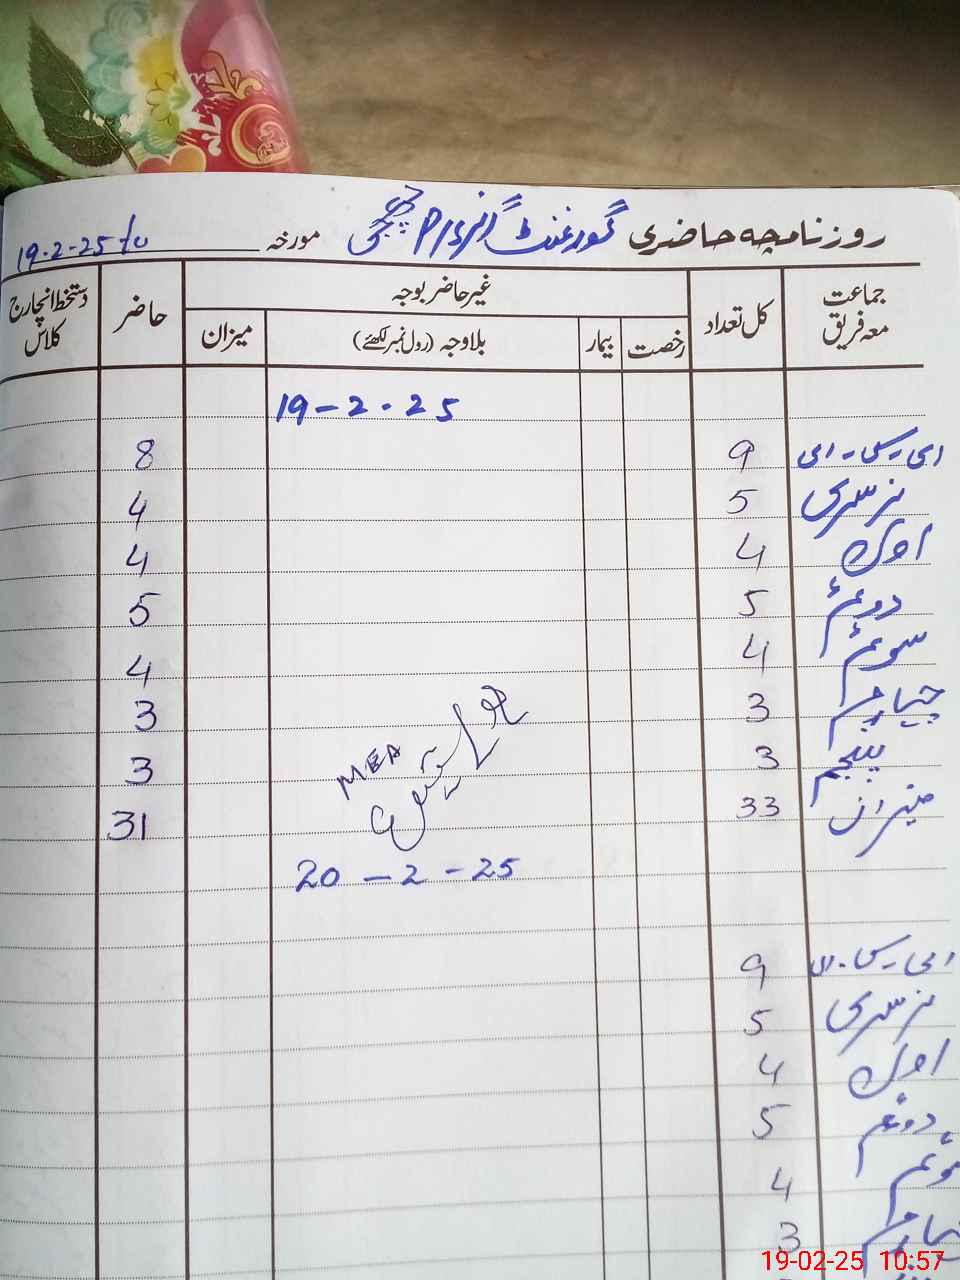 روزنامچہ حاضری گورنمنٹ گرلز P/S مورخہ 19-2-25
جماعت معہ فریق کل تعداد غیر حاضر بوجہ حاضر دستخط انچارج کلاس
رخصت بیمار بلاوجہ (رول نمبر لکھئے) میزان
19-2-25
ای۔سی۔ای 9 8
نرسری 5 4
اول 4 4
دوئم 5 5
سوئم 4 4
چہارم 3 3
پنجم 3 3
میزان 33 31
MEA
20-2-25
ای۔سی۔ای 9
نرسری 5
اول 4
دوئم 5
سوئم 4
چہارم 3
19-02-25 10:57